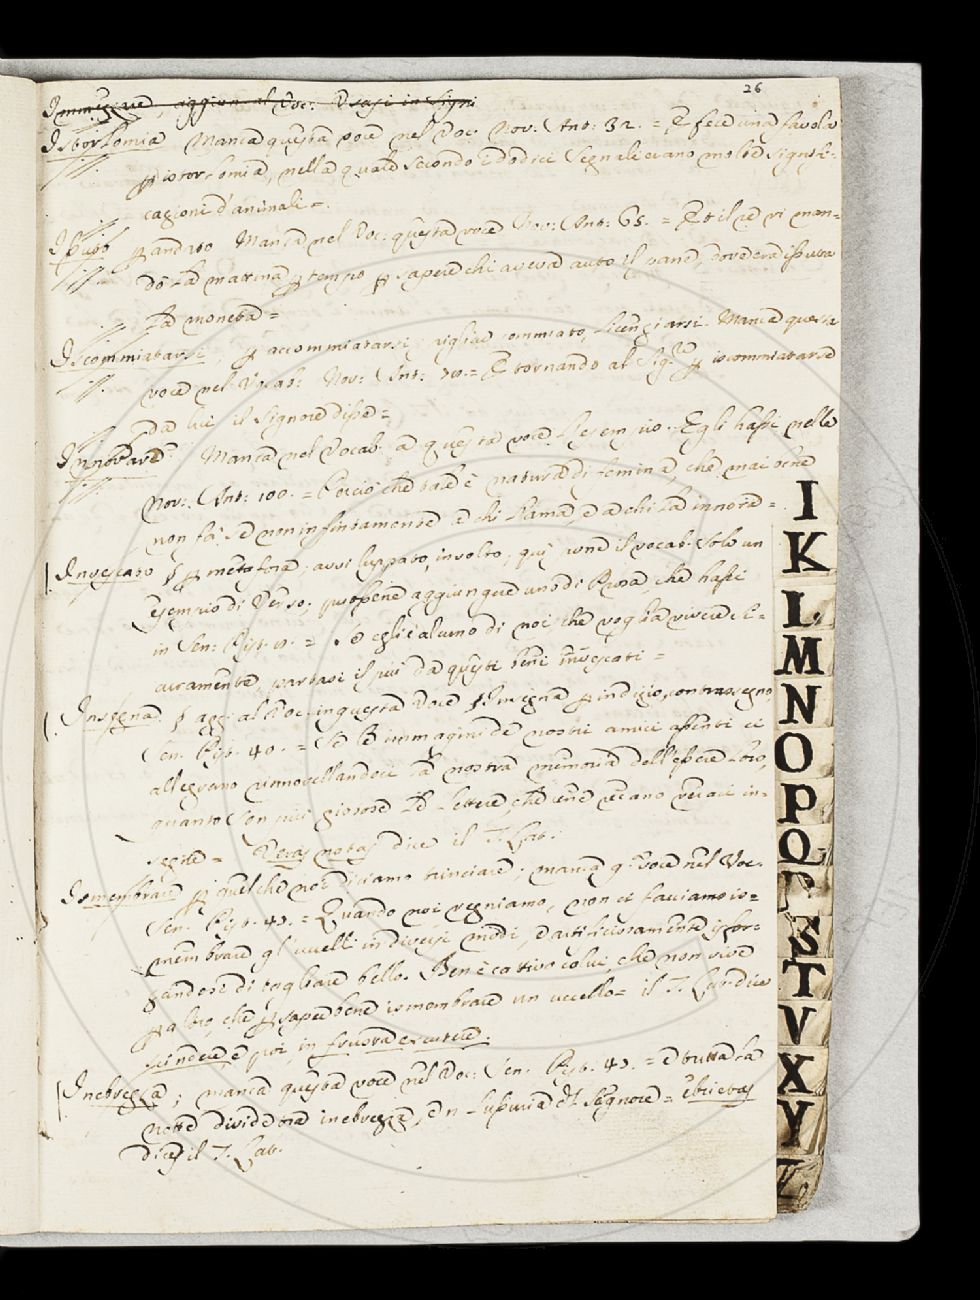 26
Istorlomia Manca questa voce nel Voc. Nov. Ant: 32. = E fece una favola
p istorlomia, nella quale secondo i dodici segnali erano molte signifi-
cagioni d'animali =.
p andato Manca nel Voc: questa voce Nov: Ant: 65. = E il re vi man-
dò la marina p tempo p sapere chi aveva auto il pane,
la moneta =
Iscommiatarsi, p accommiatarsi, pigliar commiato, licenziarsi. Manca questa
voce nel Vocab: Nov: Ant: = E tornando al Sig.re p iscommiatarse
da lui il Signore disse =
Innorare. Manca nel Vocab. a questa voce l'esempio. Egli hassi nelle
Nov: Ant: 100. = Perciò che tale è natura di femina, che mai bene
non fa se non infintamente a chi l'ama, e a chi la innora =.
Invescato p metafora, avviluppato, involto, qui pone il vocab. solo un
esempio di Verso; puossene aggiungere uno di Prosa, che hassi
in Sen: Pist. = Se egli è alcuno di noi che voglia vivere si-
curamente, partasi il più da questi beni invescati =
Insegna. agg: al Voc. in questa voce Insegna p indizio, contrassegno,
Sen. Pist. 40. = Se le immagini de nostri amici assenti ci
allegrano rinnovellandoci la nostra memoria dell'essere loro,
quanto son più gioiose le lettere, che ne recano veraci in-
segne = Veras notas dice il T. Lat.
Ismembrare p quel che noi diciamo trinciare; manca q. voce nel Voc.
Sen. Pist. 47. = Quando noi vegniamo, non ci facciamo is-
membrare gl'uccelli in diversi modi, d'artificiosamente isfor-
zandose di tagliare bello. Ben è cattivo colui, che non vive
p altro, che p sapere bene ismembrare un uccello = il T. Lat. dice
scindere, e poi in frusta excutere.
Inebrezza; manca questa voce nel Voc: Sen. Pist. 47. = e tutta la
notte divide tra inebrezza, e n lussuria del Segnore = ebrietas
dice il T. Lat.
I
K
L
M
N
O
P
Q
R
S
T
V
X
Y